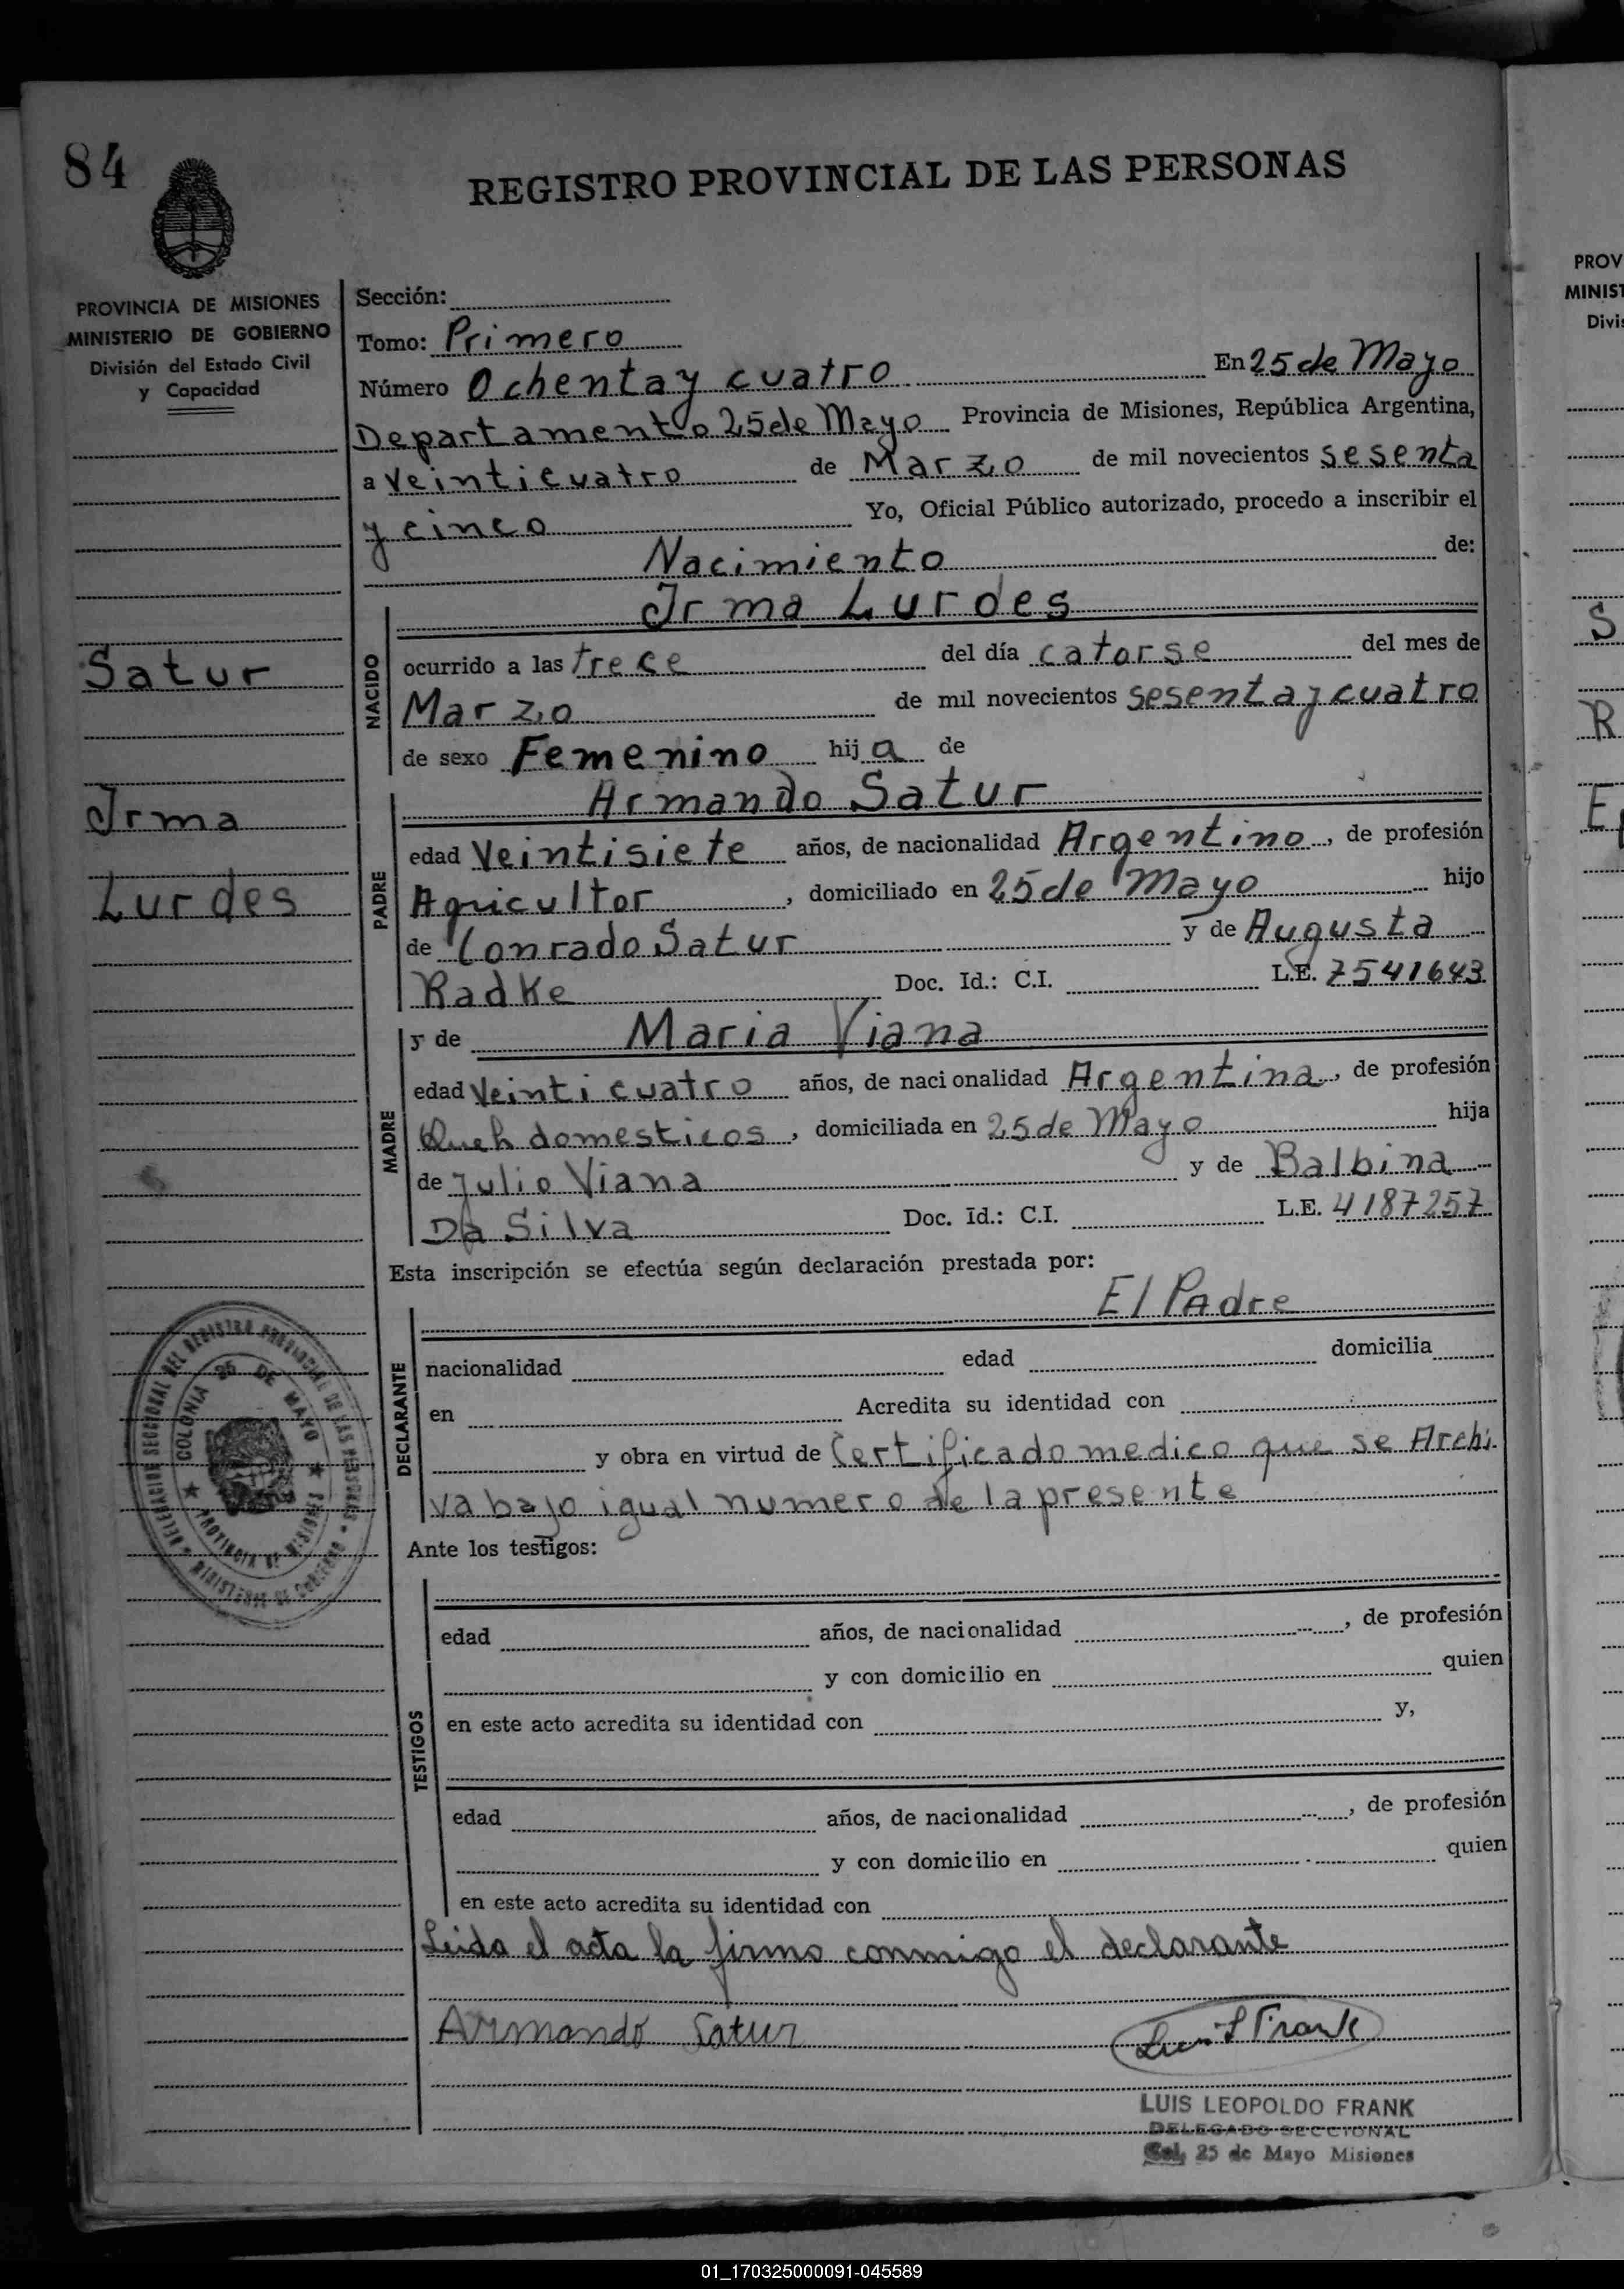 84
REGISTRO PROVINCIAL DE LAS PERSONAS
PROVINCIA DE MISIONES
MINISTERIO DE GOBIERNO
División del Estado Civil
y Capacidad
Sección:
Tomo: Primero
Número Ochenta y cuatro En 25 de Mayo
Departamento 25 de Mayo Provincia de Misiones, República Argentina,
a Veinticuatro de Marzo de mil novecientos sesenta
y cinco Yo, Oficial Público autorizado, procedo a inscribir el
Nacimiento de:
Irma Lurdes
NACIDO
ocurrido a las trece del día catorse del mes de
Marzo de mil novecientos sesenta y cuatro
de sexo Femenino hija de
Satur
Irma
Lurdes
Armando Satur
PADRE
edad Veintisiete años, de nacionalidad Argentino, de profesión
Agricultor, domiciliado en 25 de Mayo hijo
de Conrado Satur y de Augusta
Radke Doc. Id.: C.I. L.E. 7541643
y de Maria Viana
MADRE
edad Veinticuatro años, de nacionalidad Argentina, de profesión
Queh domesticos, domiciliada en 25 de Mayo hija
de Julio Viana y de Balbina
Da Silva Doc. Id.: C.I. L.E. 4187257
Esta inscripción se efectúa según declaración prestada por:
El PAdre
DECLARANTE
nacionalidad edad domicilia
en Acredita su identidad con
y obra en virtud de Certificado medico que se Archi
va bajo igual numero de la presente
DELEGACION SECCIONAL DEL REGISTRO PROVINCIAL DE LAS PERSONAS
MINISTERIO DE GOBIERNO
COLONIA 25 DE MAYO
PROVINCIA DE MISIONES
Ante los testigos:
TESTIGOS
edad años, de nacionalidad , de profesión
y con domicilio en quien
en este acto acredita su identidad con y,
edad años, de nacionalidad , de profesión
y con domicilio en quien
en este acto acredita su identidad con
Leida el acta la firma conmigo el declarante
Armando Satur
Frank
LUIS LEOPOLDO FRANK
DELEGADO SECCIONAL
Col. 25 de Mayo Misiones
PROV
MINIST
Divis
S
R
E
01_170325000091-045589